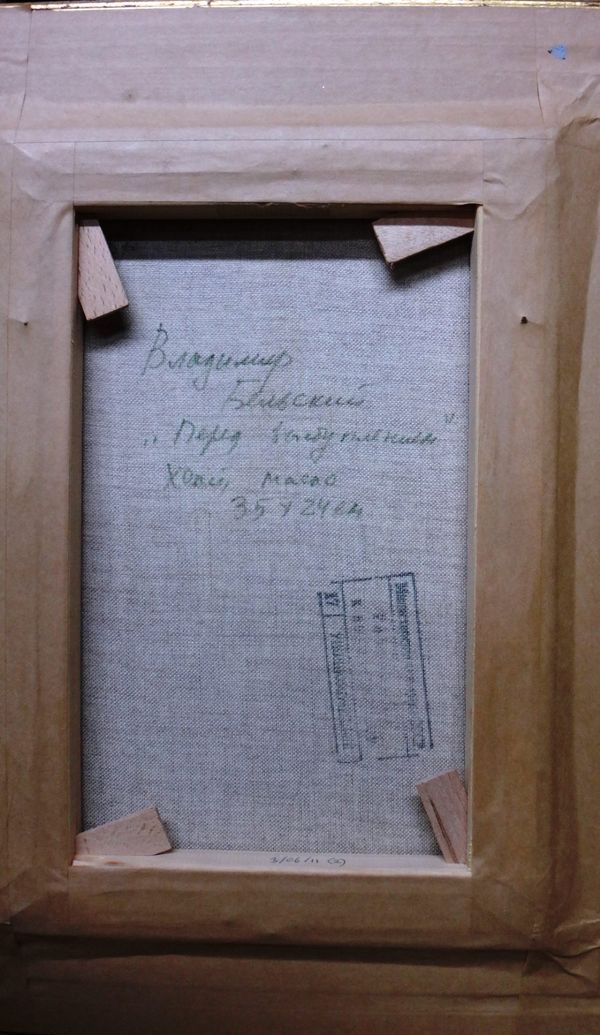 Владимир
Бельский
„Перед выступлением"
Холст, масло
35 х 24 см
Министерство
3/06/11 (2)